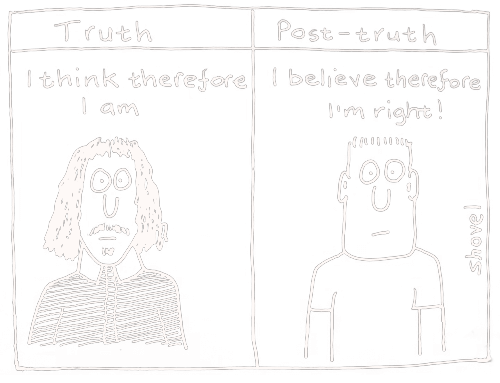 Truth
I think therefore
I am
Post-truth
I believe therefore
I'm right!
shovel